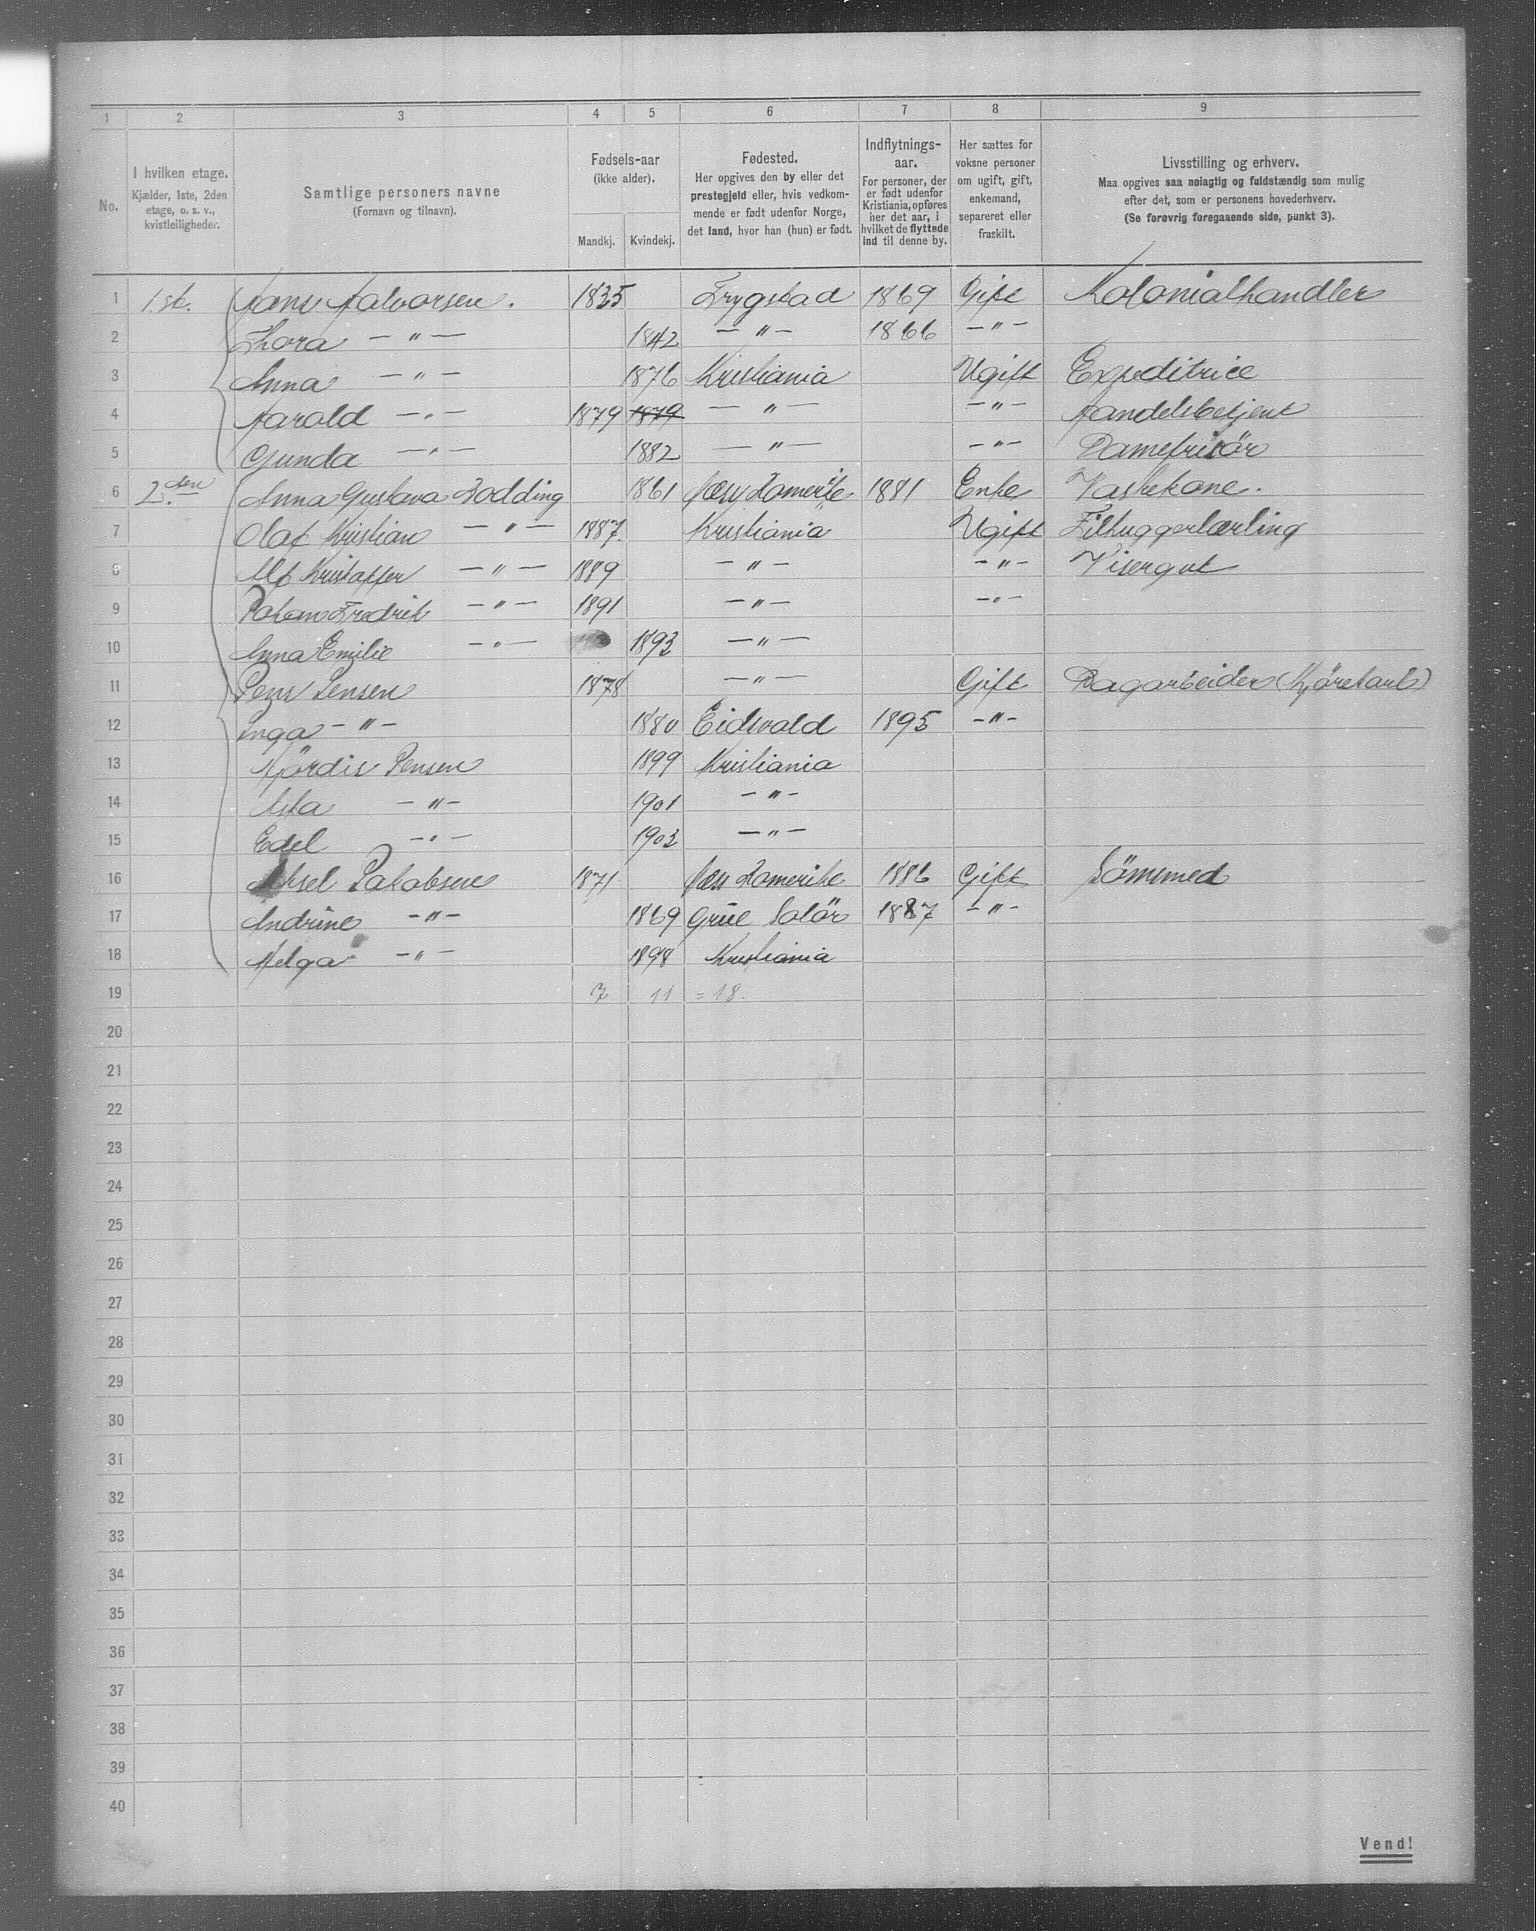 1 2 3 4 5 6 7 8 9
No.
I hvilken etage.
Kjælder, 1ste, 2den
etage, o. s. v.,
kvistleiligheder.
Samtlige personers navne
(Fornavn og tilnavn).
Fødsels-aar
(ikke alder).
Mandkj. Kvindekj.
Fødested.
Her opgives den by eller det
prestegjeld eller, hvis vedkom-
mende er født udenfor Norge,
det land, hvor han (hun) er født.
Indflytnings-
aar.
For personer, der
er født udenfor
Kristiania, opføres
her det aar, i
hvilket de flyttede
ind til denne by.
Her sættes for
voksne personer
om ugift, gift,
enkemand,
separeret eller
fraskilt.
Livsstilling og erhverv.
Maa opgives saa nøiagtig og fuldstændig som mulig
efter det, som er personens hovederhverv.
(Se forøvrig foregaaende side, punkt 3).
1 1. st. Hans Halvorsen. 1835 Trygstad 1869 Gift Kolonialhandler
2 Thora — " — 1842 — " — 1866 — " —
3 Anna — " — 1876 Kristiania Ugift Expeditrice
4 Harold — " — 1879 1879 — " — — " — Handelsbetjent
5 Gunda — " — 1882 — " — — " — Damefrisör
6 2. den Anna Gustava Rodding 1861 Næs Romerike 1881 Enke Vaskekone.
7 Olaf Kristian — " — 1887. Kristiania Ugift Filhuggerlærling
8 Alf Kristoffer — " — 1889 — " — — " — Visergut
9 Fredrik — " — 1891 — " — — " —
10 Anna Emilie — " — 1893 — " —
11 Jens Jensen 1878 — " — Gift Dagarbeider (Kjörekarl)
12 Inga — " — 1880 Eidsvold 1895 — " —
13 Hjördis Jensen 1899 Kristiania
14 Asta — " — 1901 — " —
15 Edel — " — 1903 — " —
16 Aksel Jakobsen 1871 Næs Romerike 1886 Gift Sömmed
17 Andrine — " — 1869 Grue Solör 1887 — " —
18 Helga — " — 1898 Kristiania
19 7 11 = 18.
20
21
22
23
24
25
26
27
28
29
30
31
32
33
34
35
36
37
38
39
40
Vend!